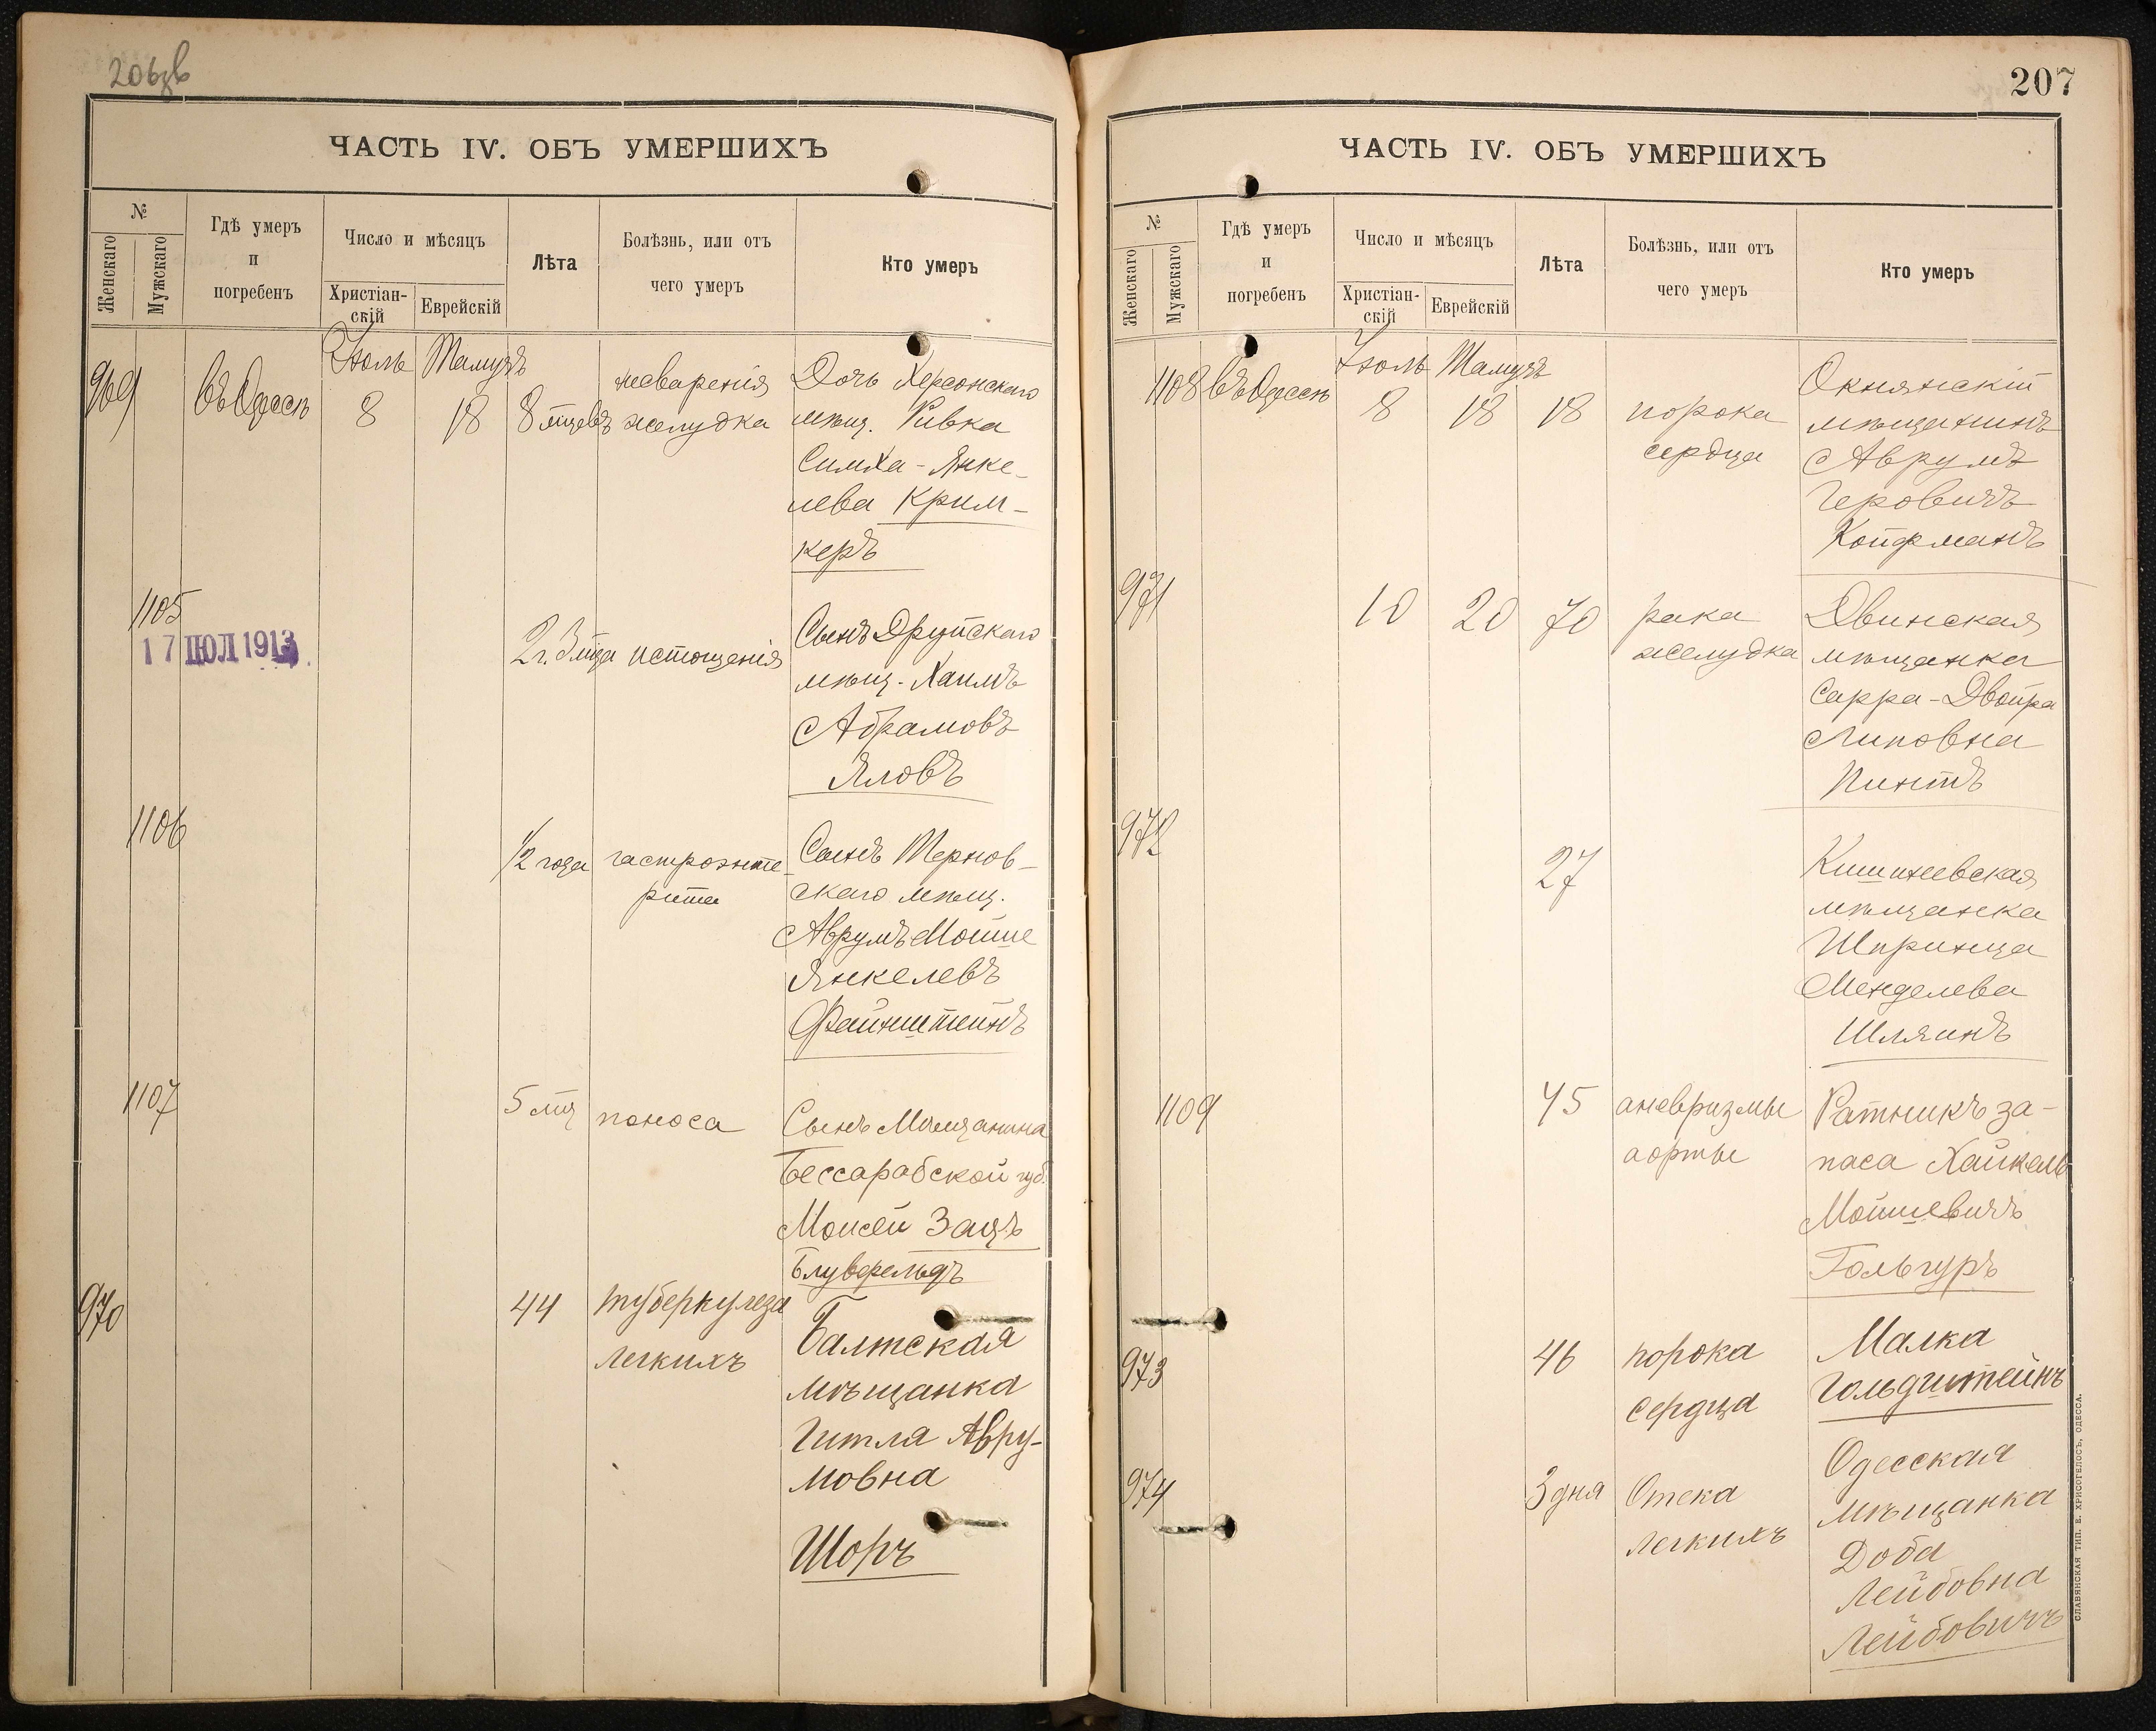 206зв
ЧАСТЬ IV. ОБЪ УМЕРШИХЪ
№
Женскаго
Мужскаго
Гдѣ умеръ
и
погребенъ
Число и мѣсяцъ
Христіан-
скій
Еврейскій
Лѣта
Болѣзнь, или отъ
чего умеръ
Кто умеръ
Іюль Тамузъ
969 въ Одессѣ 8 18 8 мцевъ несваренія
желудка
Дочь Херсонскаго
мѣщ. Ривка
Симха-Янке-
лева Крим-
керъ
1105
17 ІЮЛ 1913
2 г. 3 мца истощенія
Сынъ Друйскаго
мѣщ. Хаимъ
Абрамовъ
Яловъ
1106
1/2 года гастроэнте-
рита
Сынъ Тернов-
скаго мѣщ.
Аврумъ Мойше
Янкелевъ
Файнштейнъ
1107
5 мц поноса
Сынъ Мѣщанина
Бессарабской губ.
Моисей Зацъ
Блувфельдъ
970
44 туберкулеза
легкихъ
Балтская
мѣщанка
Гитля Авру-
мовна
Шоръ
207
ЧАСТЬ IV. ОБЪ УМЕРШИХЪ
№
Женскаго
Мужскаго
Гдѣ умеръ
и
погребенъ
Число и мѣсяцъ
Христіан-
скій
Еврейскій
Лѣта
Болѣзнь, или отъ
чего умеръ
Кто умеръ
Іюль Тамузъ
1108 въ Одессѣ 8 18 18 порока
сердца
Окнянскій
мѣщанинъ
Аврумъ
Геровичъ
Койфманъ
971
10 20 70 рака
желудка
Двинская
мѣщанка
Сарра-Двойра
Липовна
Пинтъ
972
27
Кишиневская
мѣщанка
Шпринца
Менделева
Шляинъ
1109
45 аневризмы
аорты
Ратникъ за-
паса Хайкель
Мойшевичъ
Гольгуръ
973
46 порока
сердца
Малка
Гольдштейнъ
974
3 дня Отека
легкихъ
Одесская
мѣщанка
Доба
Лейбовна
Лейбовичъ
СЛАВЯНСКАЯ ТИП. Е. ХРИСОГЕЛОСЪ, ОДЕССА.